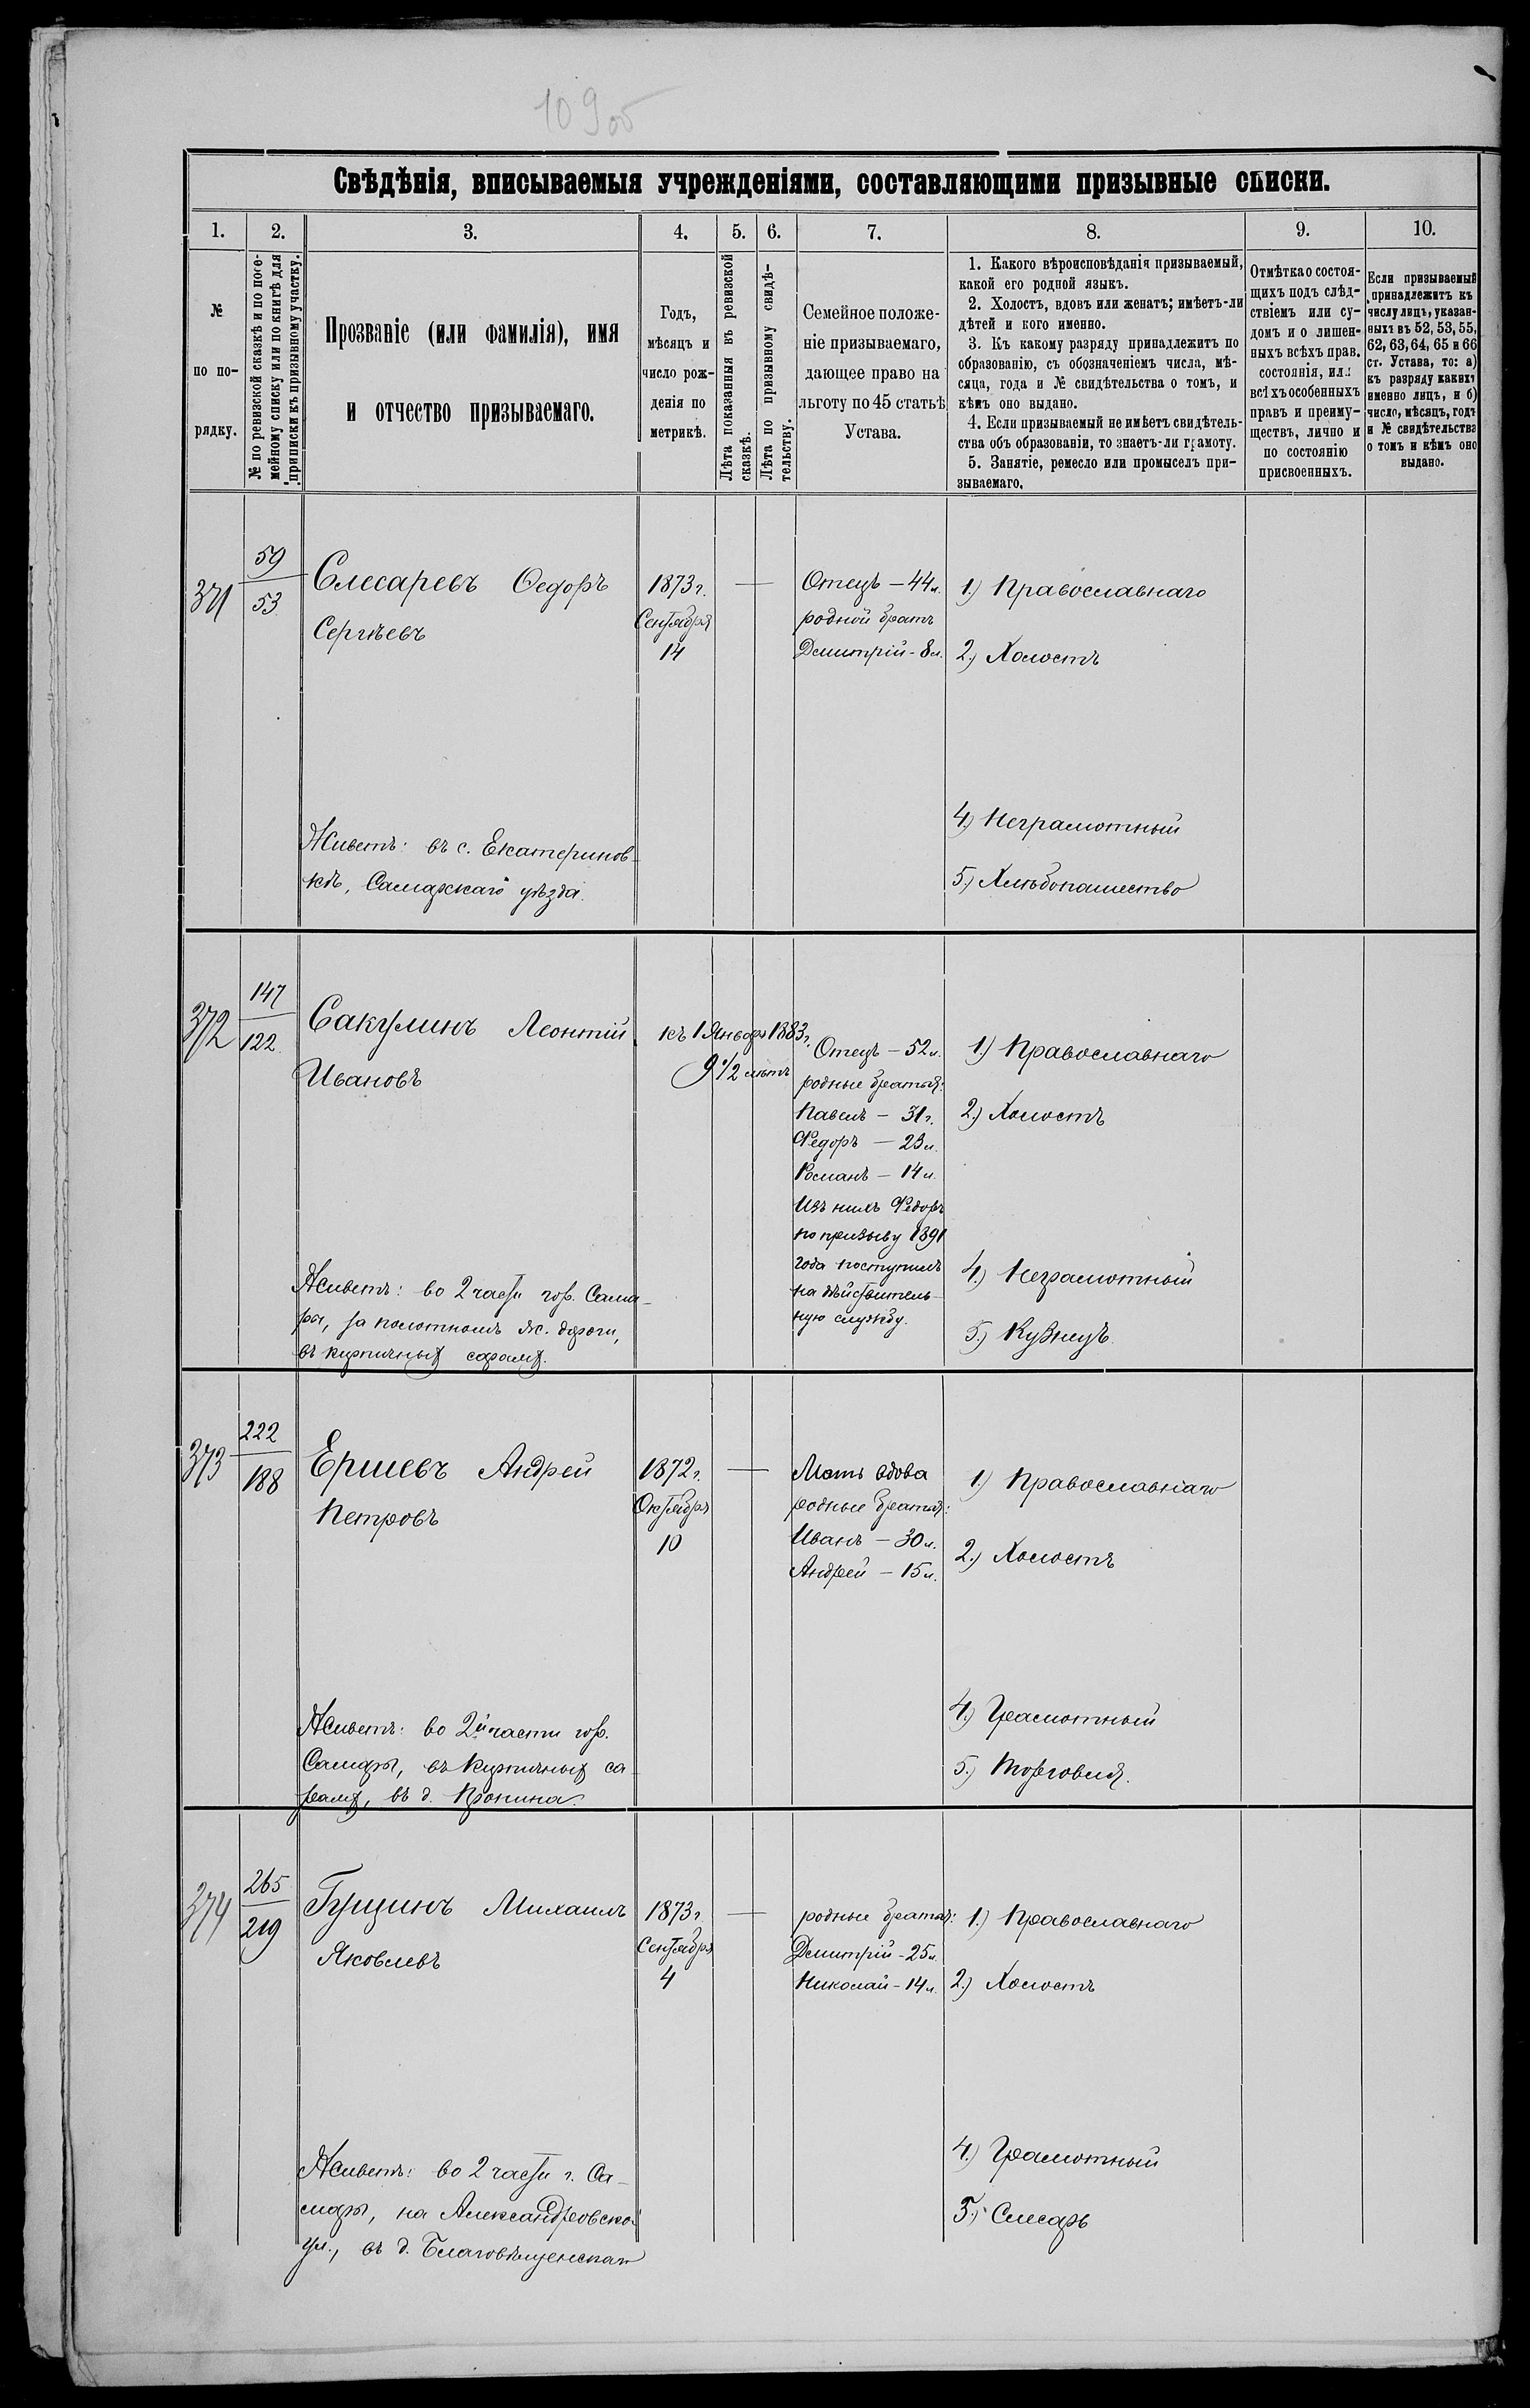 109 об
Свѣдѣнія, вписываемыя учрежденіями, составляющими призывные списки.
1. 2. 3. 4. 5. 6. 7. 8. 9. 10.
№
по по-
рядку.
№ по ревизской сказкѣ и по посе-
мейному списку или по книгѣ для
приписки къ призывному участку.
Прозваніе (или фамилія), имя
и отчество призываемаго.
Годъ,
мѣсяцъ и
число рож-
денія по
метрикѣ.
Лѣта показанныя въ ревизской
сказкѣ.
Лѣта по призывному свидѣ-
тельству.
Семейное положе-
ніе призываемаго,
дающее право на
льготу по 45 статьѣ
Устава.
1. Какого вѣроисповѣданія призываемый,
какой его родной языкъ.
2. Холостъ, вдовъ или женатъ; имѣетъ-ли
дѣтей и кого именно.
3. Къ какому разряду принадлежитъ по
образованію, съ обозначеніемъ числа, мѣ-
сяца, года и № свидѣтельства о томъ, и
кѣмъ оно выдано.
4. Если призываемый не имѣетъ свидѣтель-
ства объ образованіи, то знаетъ-ли грамоту.
5. Занятіе, ремесло или промыселъ при-
зываемаго.
Отмѣтка о состоя-
щихъ подъ слѣд-
ствіемъ или су-
домъ и о лишен-
ныхъ всѣхъ прав.
состоянія, или
всѣхъ особенныхъ
правъ и преиму-
ществъ, лично и
по состоянію
присвоенныхъ.
Если призываемый
принадлежитъ къ
числу лицъ, указан-
ныхъ въ 52, 53, 55,
62, 63, 64, 65 и 66
ст. Устава, то: а)
къ разряду какихъ
именно лицъ, и б)
число, мѣсяцъ, годъ
и № свидѣтельства
о томъ и кѣмъ оно
выдано.
371
59
53
Слесаревъ Ѳедоръ
Сергѣевъ
Живетъ: въ с. Екатеринов-
кѣ, Самарскаго уѣзда.
1873 г.
Сентября
14
—
Отецъ – 44 л.
родной братъ
Дмитрій – 8 л.
1.) Православнаго
2.) Холостъ
4.) Неграмотный
5.) Хлѣбопашество
372
147
122
Сакулинъ Леонтій
Ивановъ
Живетъ: во 2 части гор. Сама-
ры, за полотномъ ж. дороги,
въ кирпичныхъ сараяхъ.
къ 1 Января 1883 г.
9 1/2 лѣтъ
Отецъ – 52 л.
родные братья:
Павелъ – 31 г.
Федоръ – 23 л.
Романъ – 14 л.
Изъ нихъ Федоръ
по призыву 1891
года поступилъ
на дѣйствитель-
ную службу.
1.) Православнаго
2.) Холостъ
4.) Неграмотный
5.) Кузнецъ
373
222
188
Ершевъ Андрей
Петровъ
Живетъ: во 2й части гор.
Самары, въ кирпичныхъ са-
раяхъ, въ д. Пронина.
1872 г.
Октября
10
—
Мать вдова
родные братья:
Иванъ – 30 л.
Андрей – 15 л.
1.) Православнаго
2.) Холостъ
4.) Грамотный
5.) Торговля.
374
265
219
Гущинъ Михаилъ
Яковлевъ
Живетъ: во 2 части г. Са-
мары, на Александровской
ул., въ д. Благовѣщенскаго
1873 г.
Сентября
4
—
родные братья:
Дмитрій – 25 л.
Николай – 14 л.
1.) Православнаго
2.) Холостъ
4.) Грамотный
5.) Слесарь